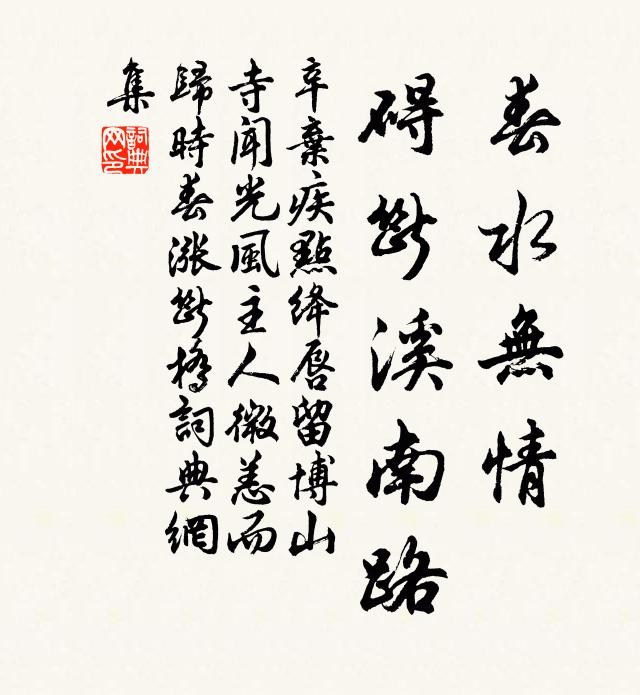 春水無情
碍斷溪南路
辛棄疾點绛唇留博山
寺聞光風主人微恙而
歸時春漲斷橋詞典網
集
詞典
网印